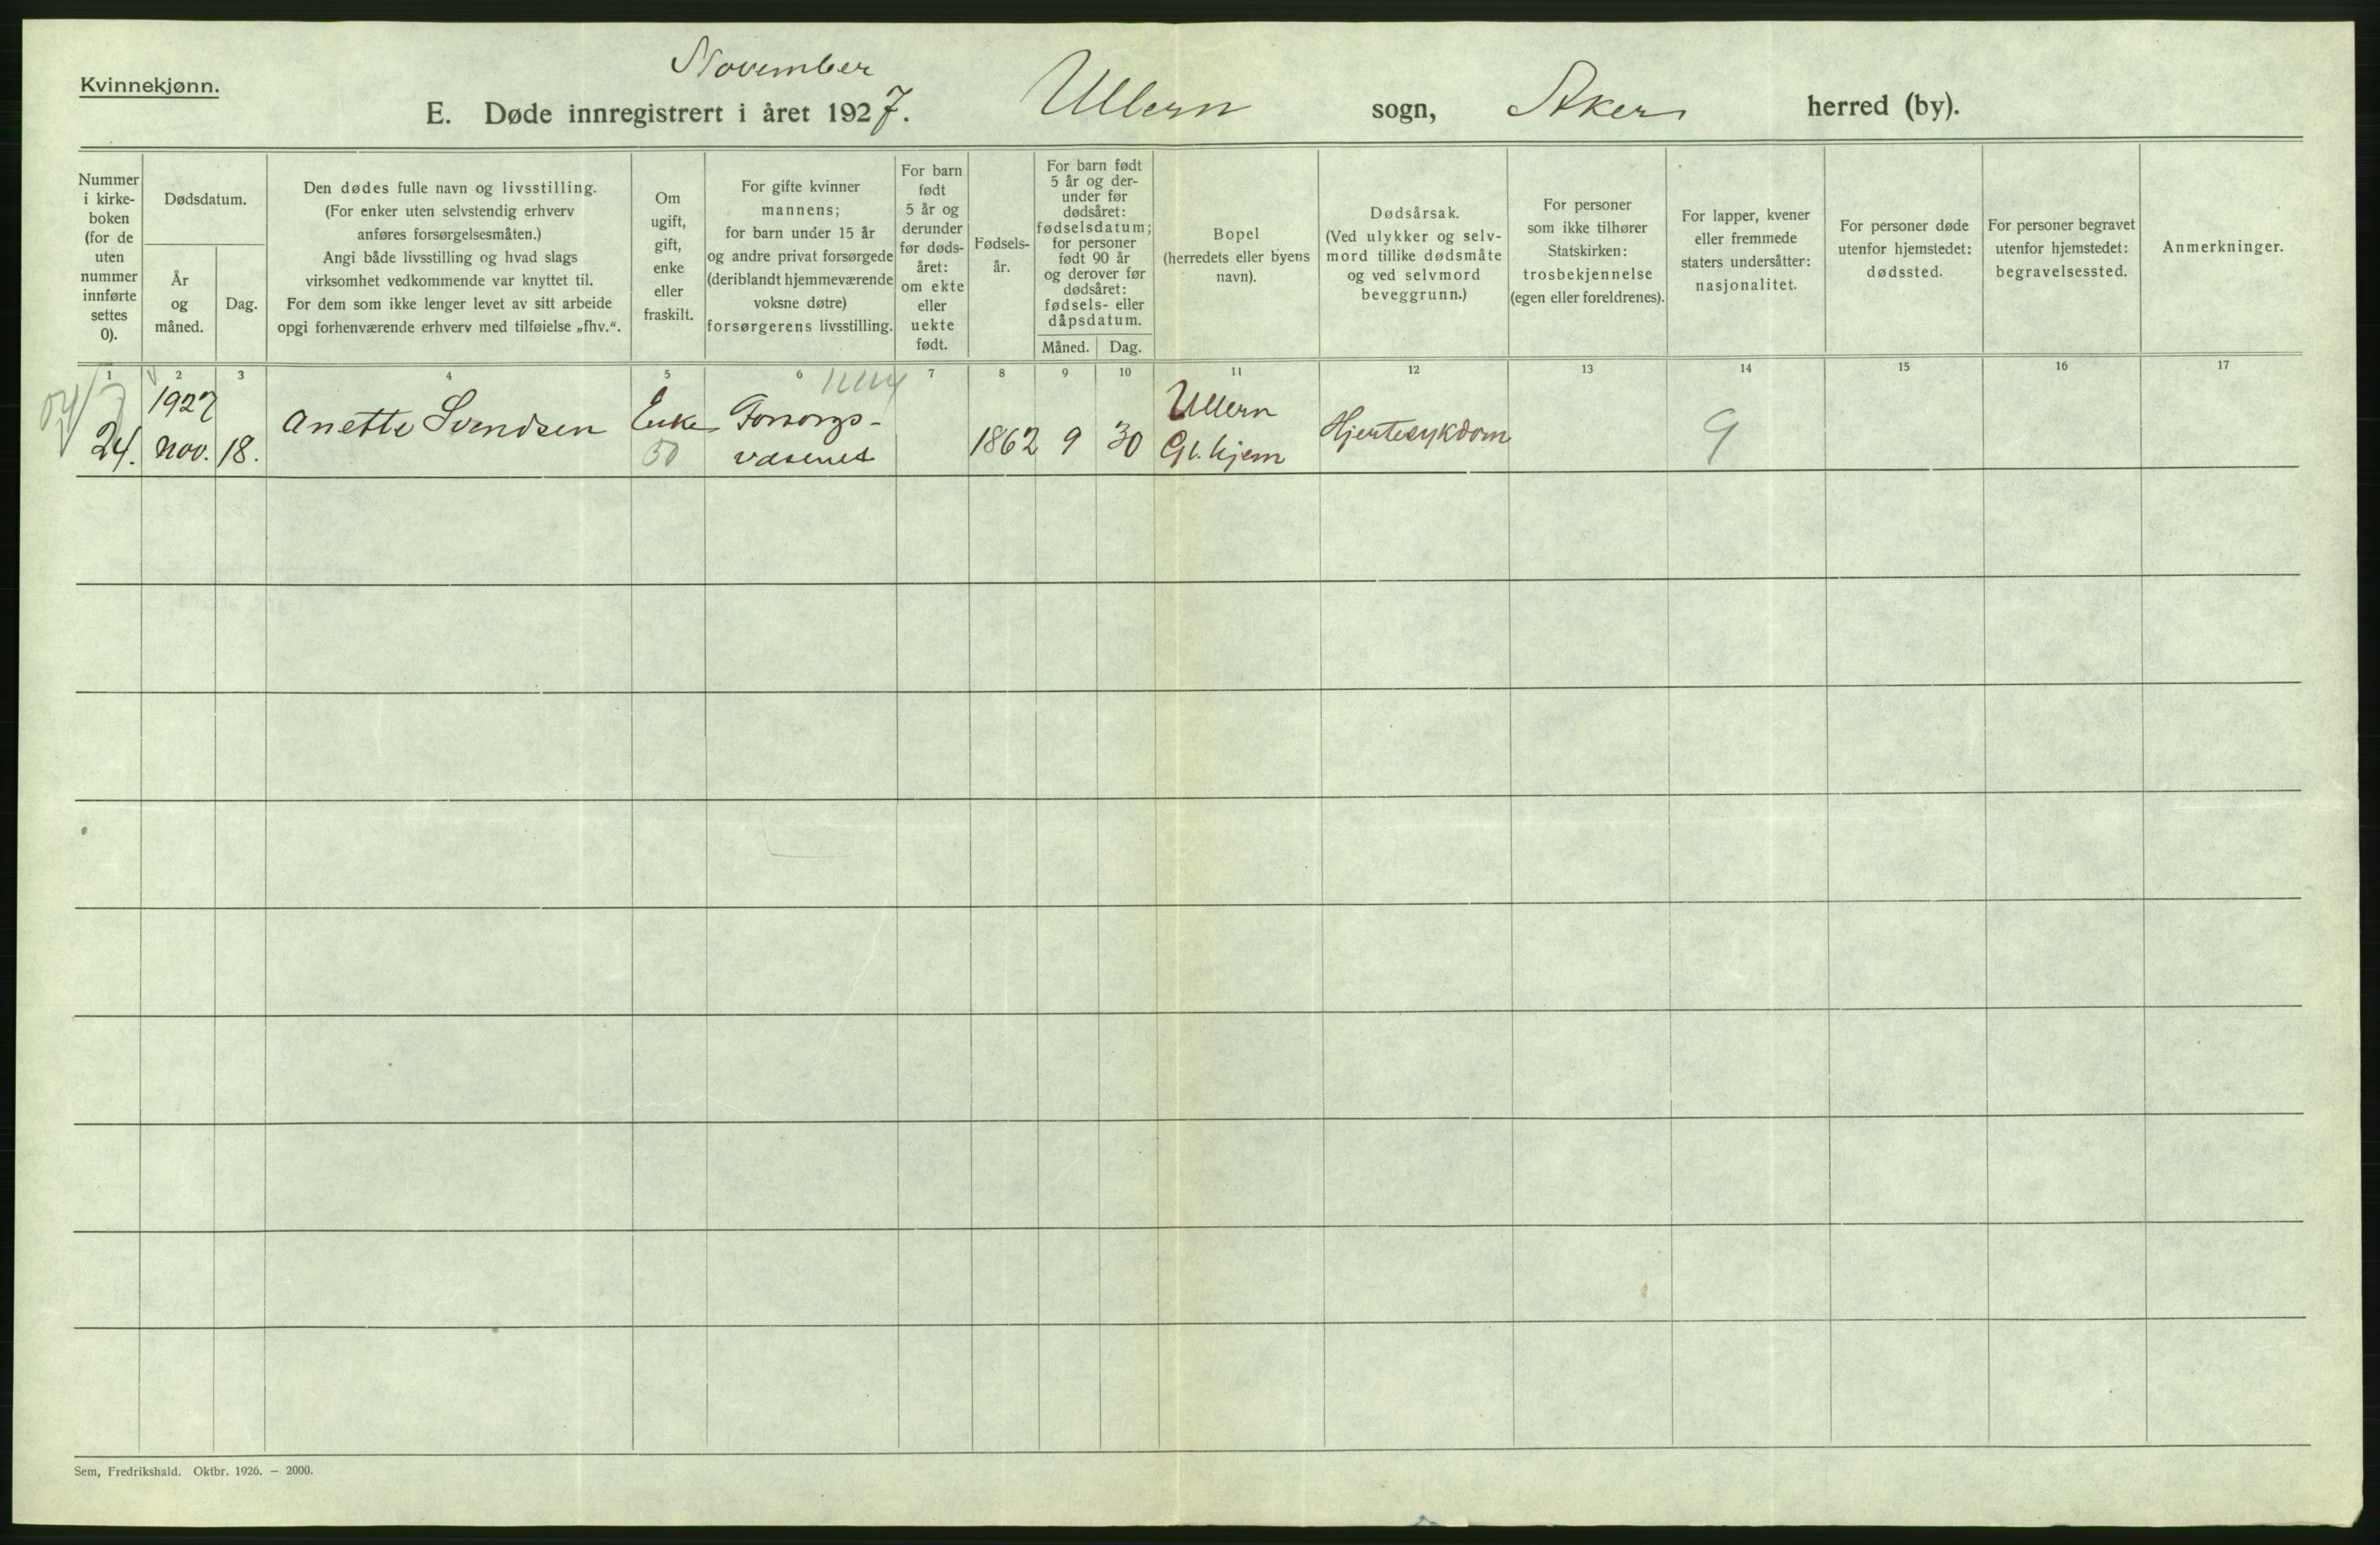 Kvinnekjønn.
November
E. Døde innregistrert i året 1927. Ullern sogn, Aker herred (by).
Nummer
i kirke-
boken
(for de
uten
nummer
innførte
settes
0).
Dødsdatum.
År
og
måned.
Dag.
Den dødes fulle navn og livsstilling.
(For enker uten selvstendig erhverv
anføres forsørgelsesmåten.)
Angi både livsstilling og hvad slags
virksomhet vedkommende var knyttet til.
For dem som ikke lenger levet av sitt arbeide
opgi forhenværende erhverv med tilføielse „fhv.“.
Om
ugift,
gift,
enke
eller
fraskilt.
For gifte kvinner
mannens;
for barn under 15 år
og andre privat forsørgede
(deriblandt hjemmeværende
voksne døtre)
forsørgerens livsstilling.
For barn
født
5 år og
derunder
før døds-
året:
om ekte
eller
uekte
født.
Fødsels-
år.
For barn født
5 år og der-
under før
dødsåret:
fødselsdatum;
for personer
født 90 år
og derover før
dødsåret:
fødsels- eller
dåpsdatum.
Måned. Dag.
Bopel
(herredets eller byens
navn).
Dødsårsak.
(Ved ulykker og selv-
mord tillike dødsmåte
og ved selvmord
beveggrunn.)
For personer
som ikke tilhører
Statskirken:
trosbekjennelse
(egen eller foreldrenes).
For lapper, kvener
eller fremmede
staters undersåtter:
nasjonalitet.
For personer døde
utenfor hjemstedet:
dødssted.
For personer begravet
utenfor hjemstedet:
begravelsessted.
Anmerkninger.
1 2 3 4 5 6 7 8 9 10 11 12 13 14 15 16 17
1927
24. Nov. 18.
Anette Svendsen
Enke
50
Forsorgs-
væsenet
1862 9 30
Ullern
Gl. hjem
Hjertesykdom
9
Sem, Fredrikshald. Oktbr. 1926. — 2000.